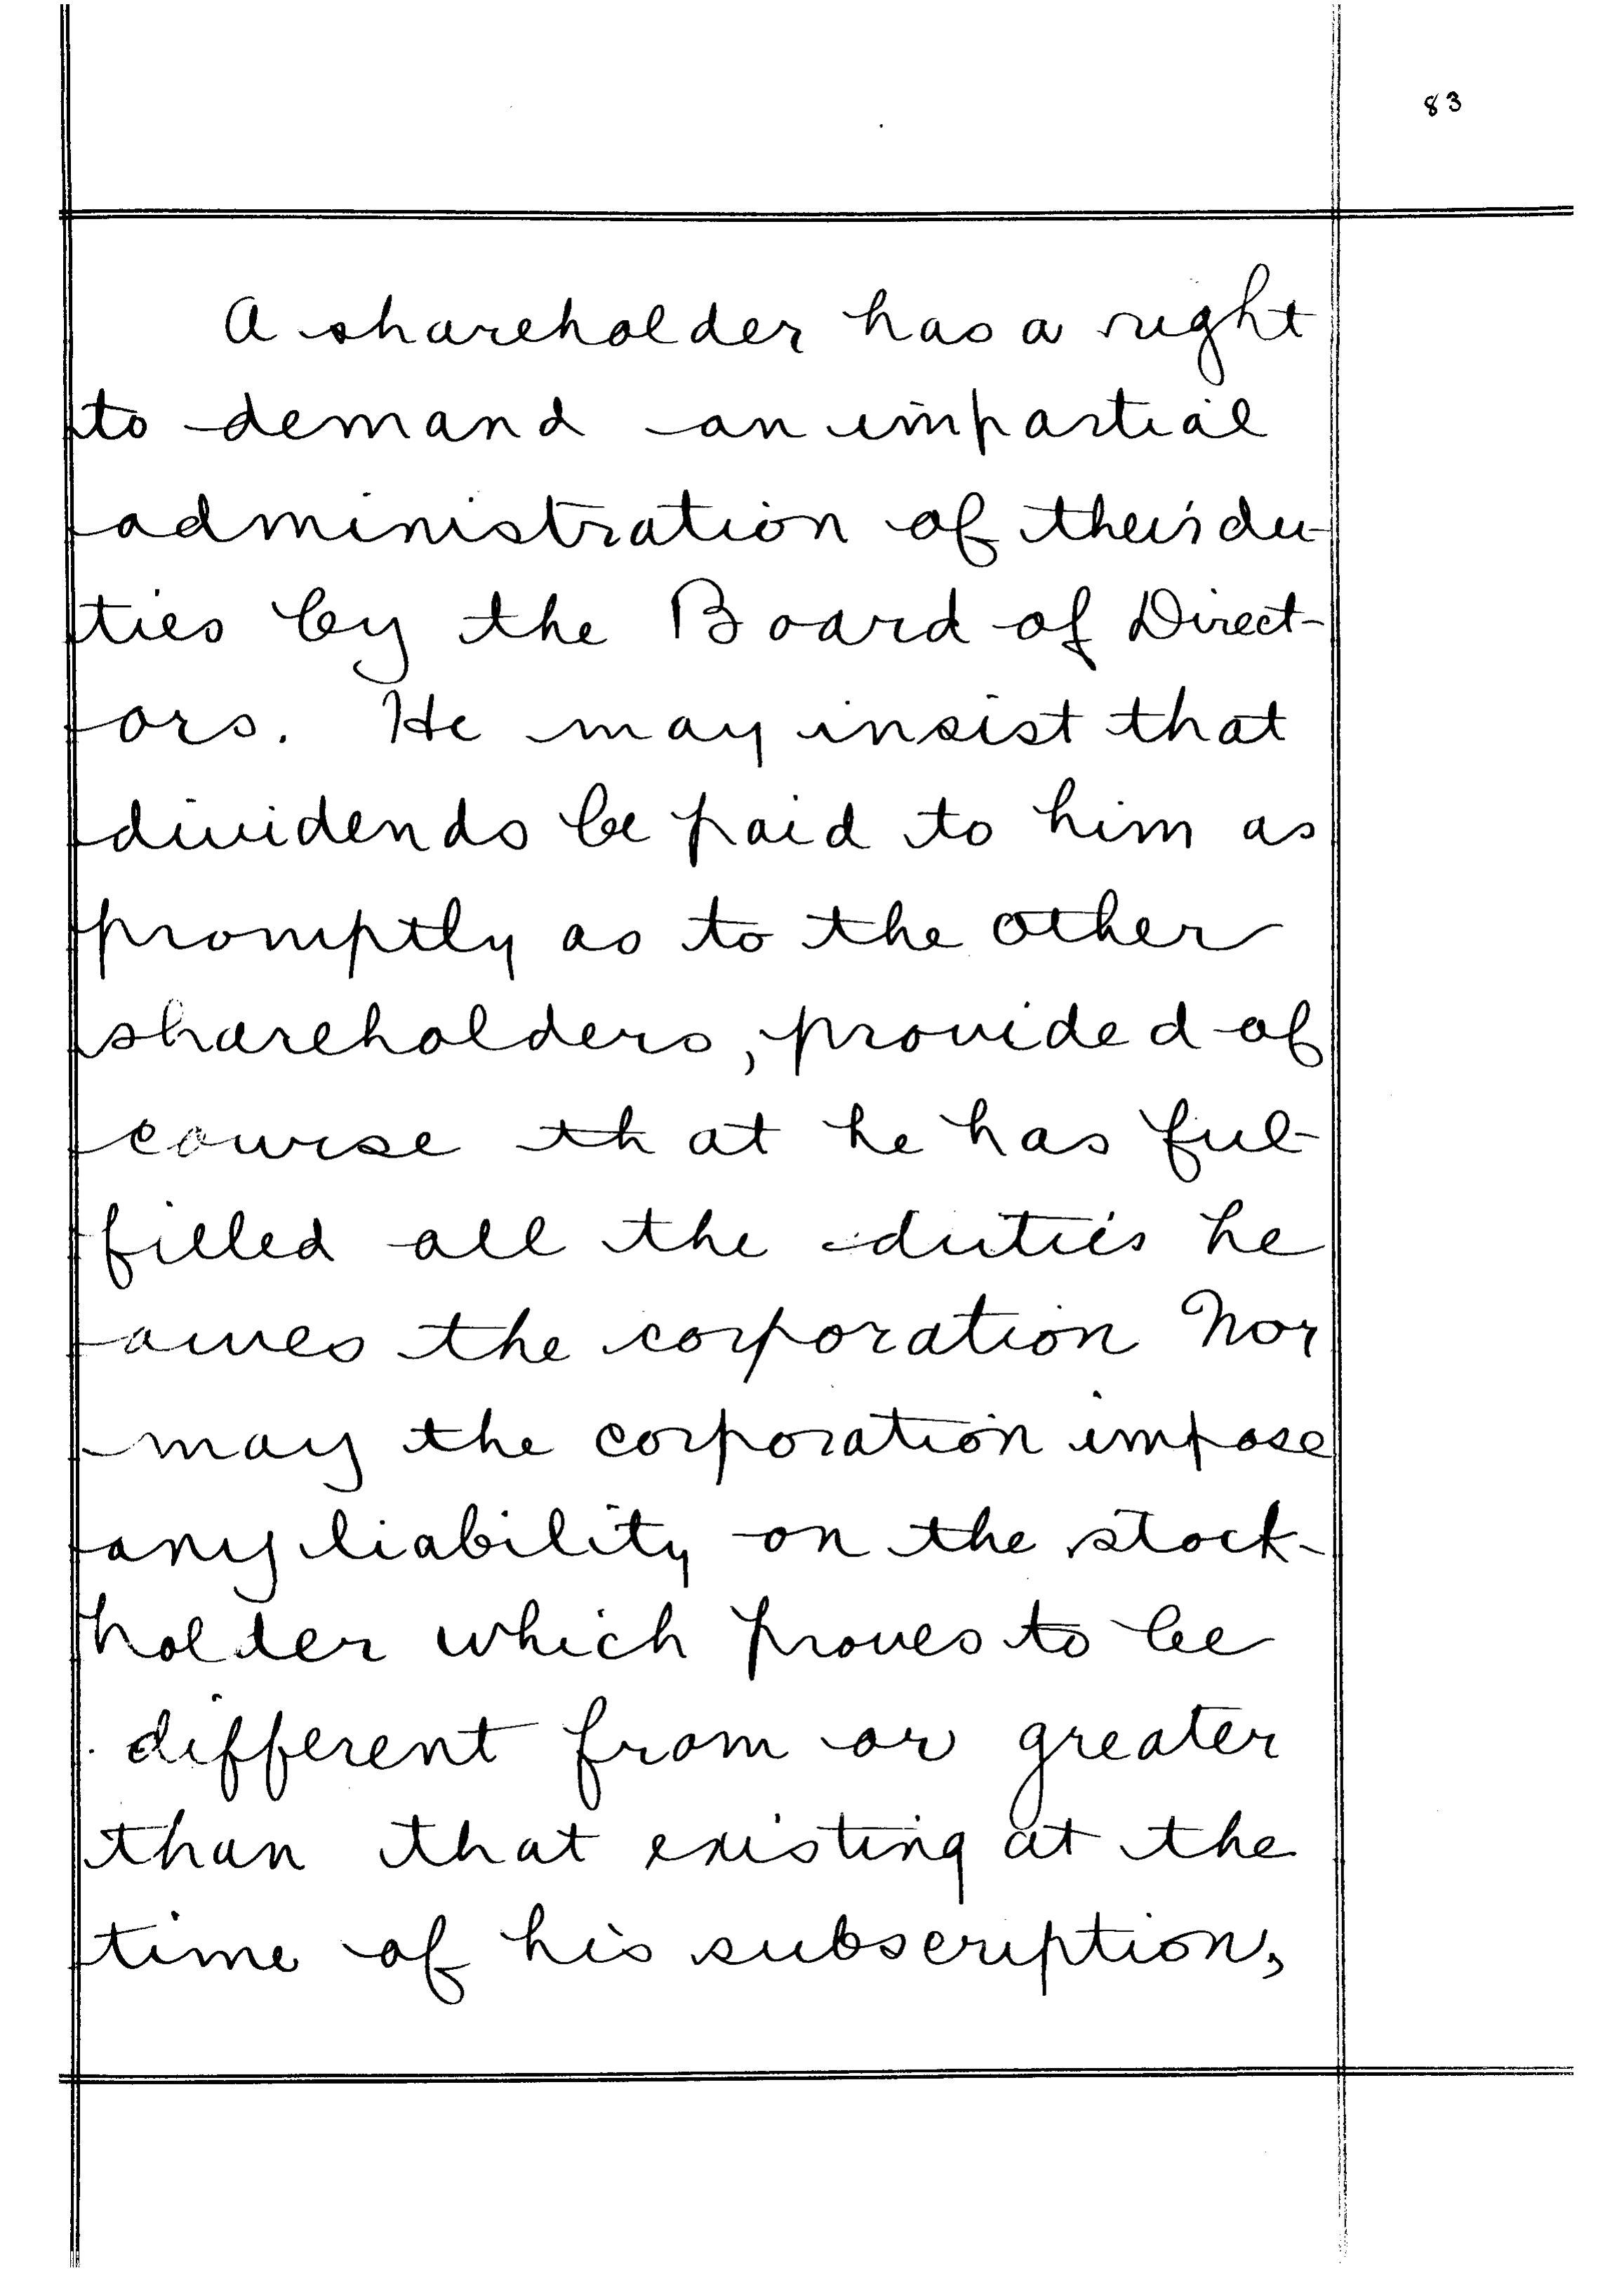 83
A shareholder has a right
to demand an impartial
administration of their du-
ties by the Board of Direct-
ors. He may insist that
dividends be paid to him as
promptly as to the other
shareholders, provided of
course that he has ful-
filled all the duties he
owes the corporation Nor
may the corporation impose
any liability on the stock-
holder which proves to be
different from or greater
than that existing at the
time of his subscription,